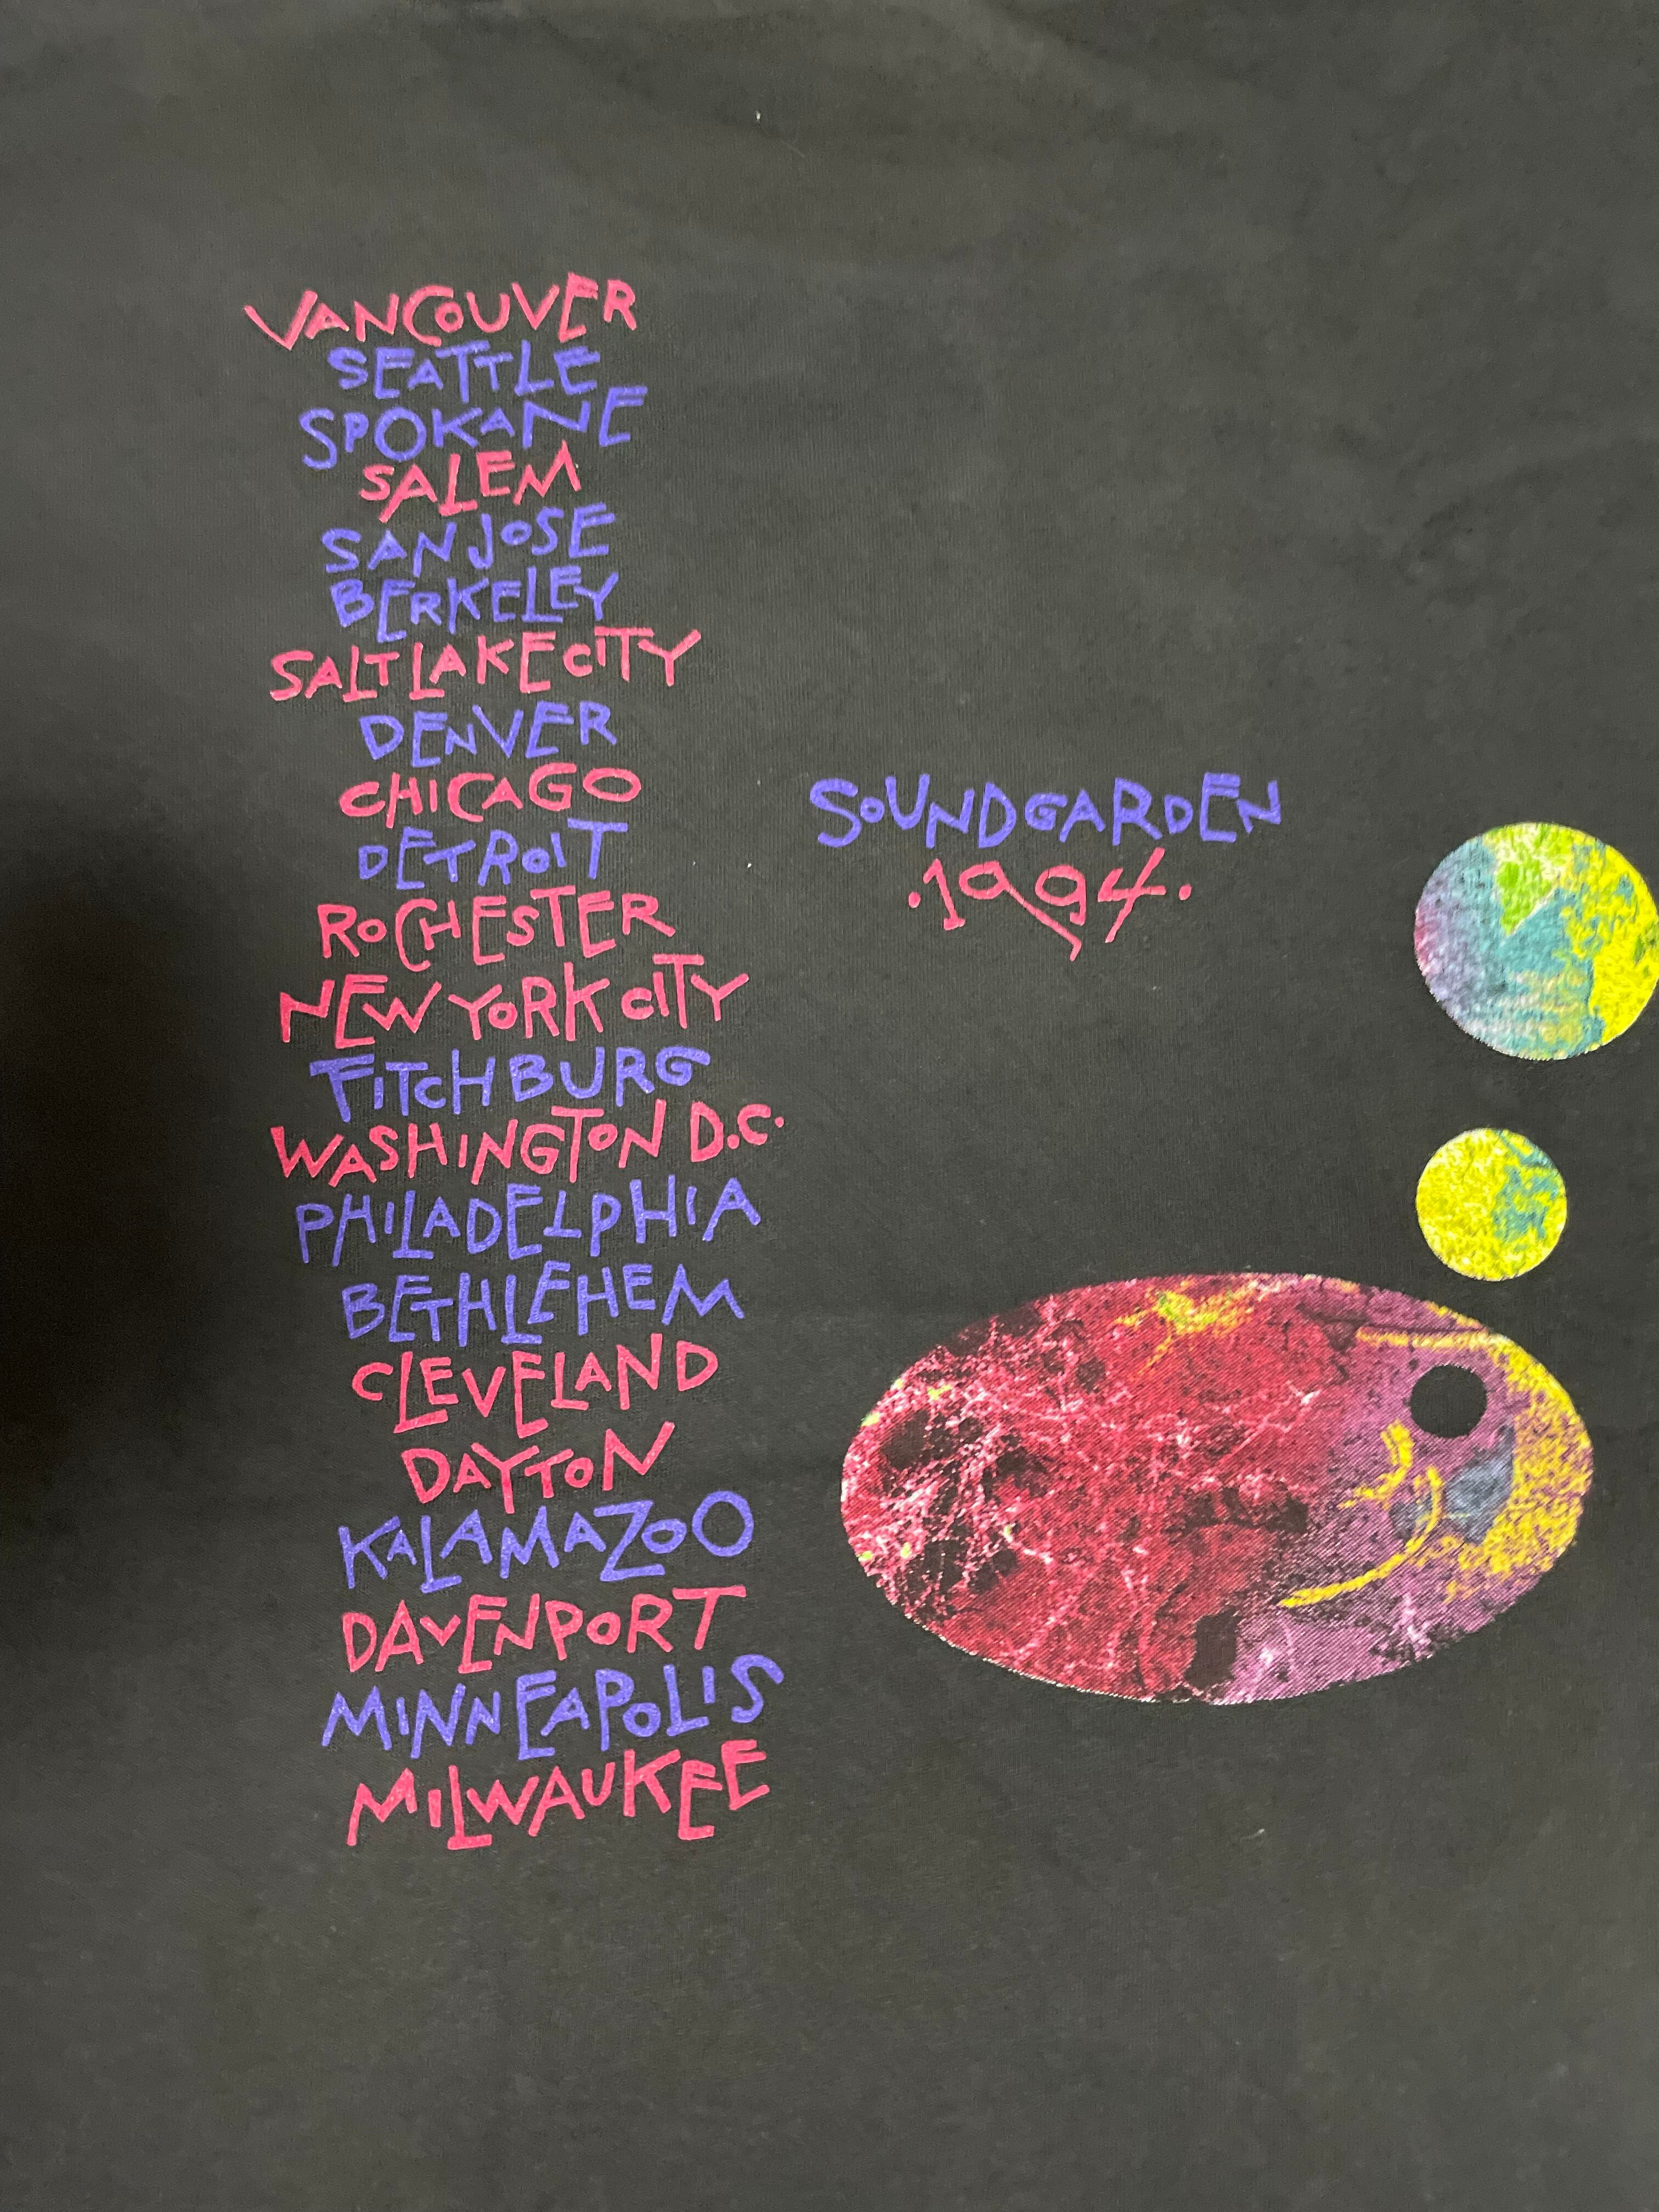 VANCOUVER
SEATTLE
SPOKANE
SALEM
SAN JOSE
BERKELEY
SALT LAKE CITY
DENVER
CHICAGO
DETROIT
ROCHESTER
NEW YORK CITY
FITCHBURG
WASHINGTON D.C.
PHILADELPHIA
BETHLEHEM
CLEVELAND
DAYTON
KALAMAZOO
DAVENPORT
MINNEAPOLIS
MILWAUKEE
SOUNDGARDEN
·1994·